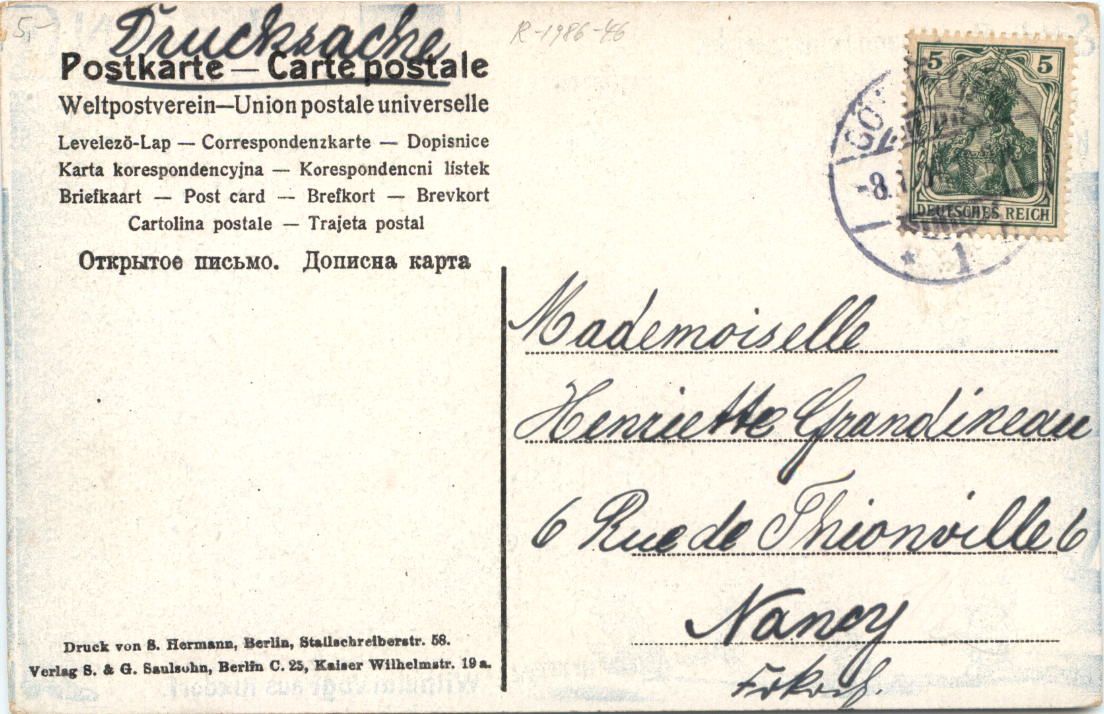 5,-
Drucksache
R-1986-46
Postkarte — Carte postale
Weltpostverein—Union postale universelle
Levelező-Lap — Correspondenzkarte — Dopisnice
Karta korespondencyjna — Korespondencni lístek
Briefkaart — Post card — Brefkort — Brevkort
Cartolina postale — Trajeta postal
Открытое письмо. Дописна карта
5 5
DEUTSCHES REICH
-8.
* 1
Mademoiselle
Henriette Grandineau
6 Rue de Thionville 6
Nancy
Druck von S. Hermann, Berlin, Stallschreiberstr. 58.
Verlag S. & G. Saulsohn, Berlin C. 25, Kaiser Wilhelmstr. 19a.